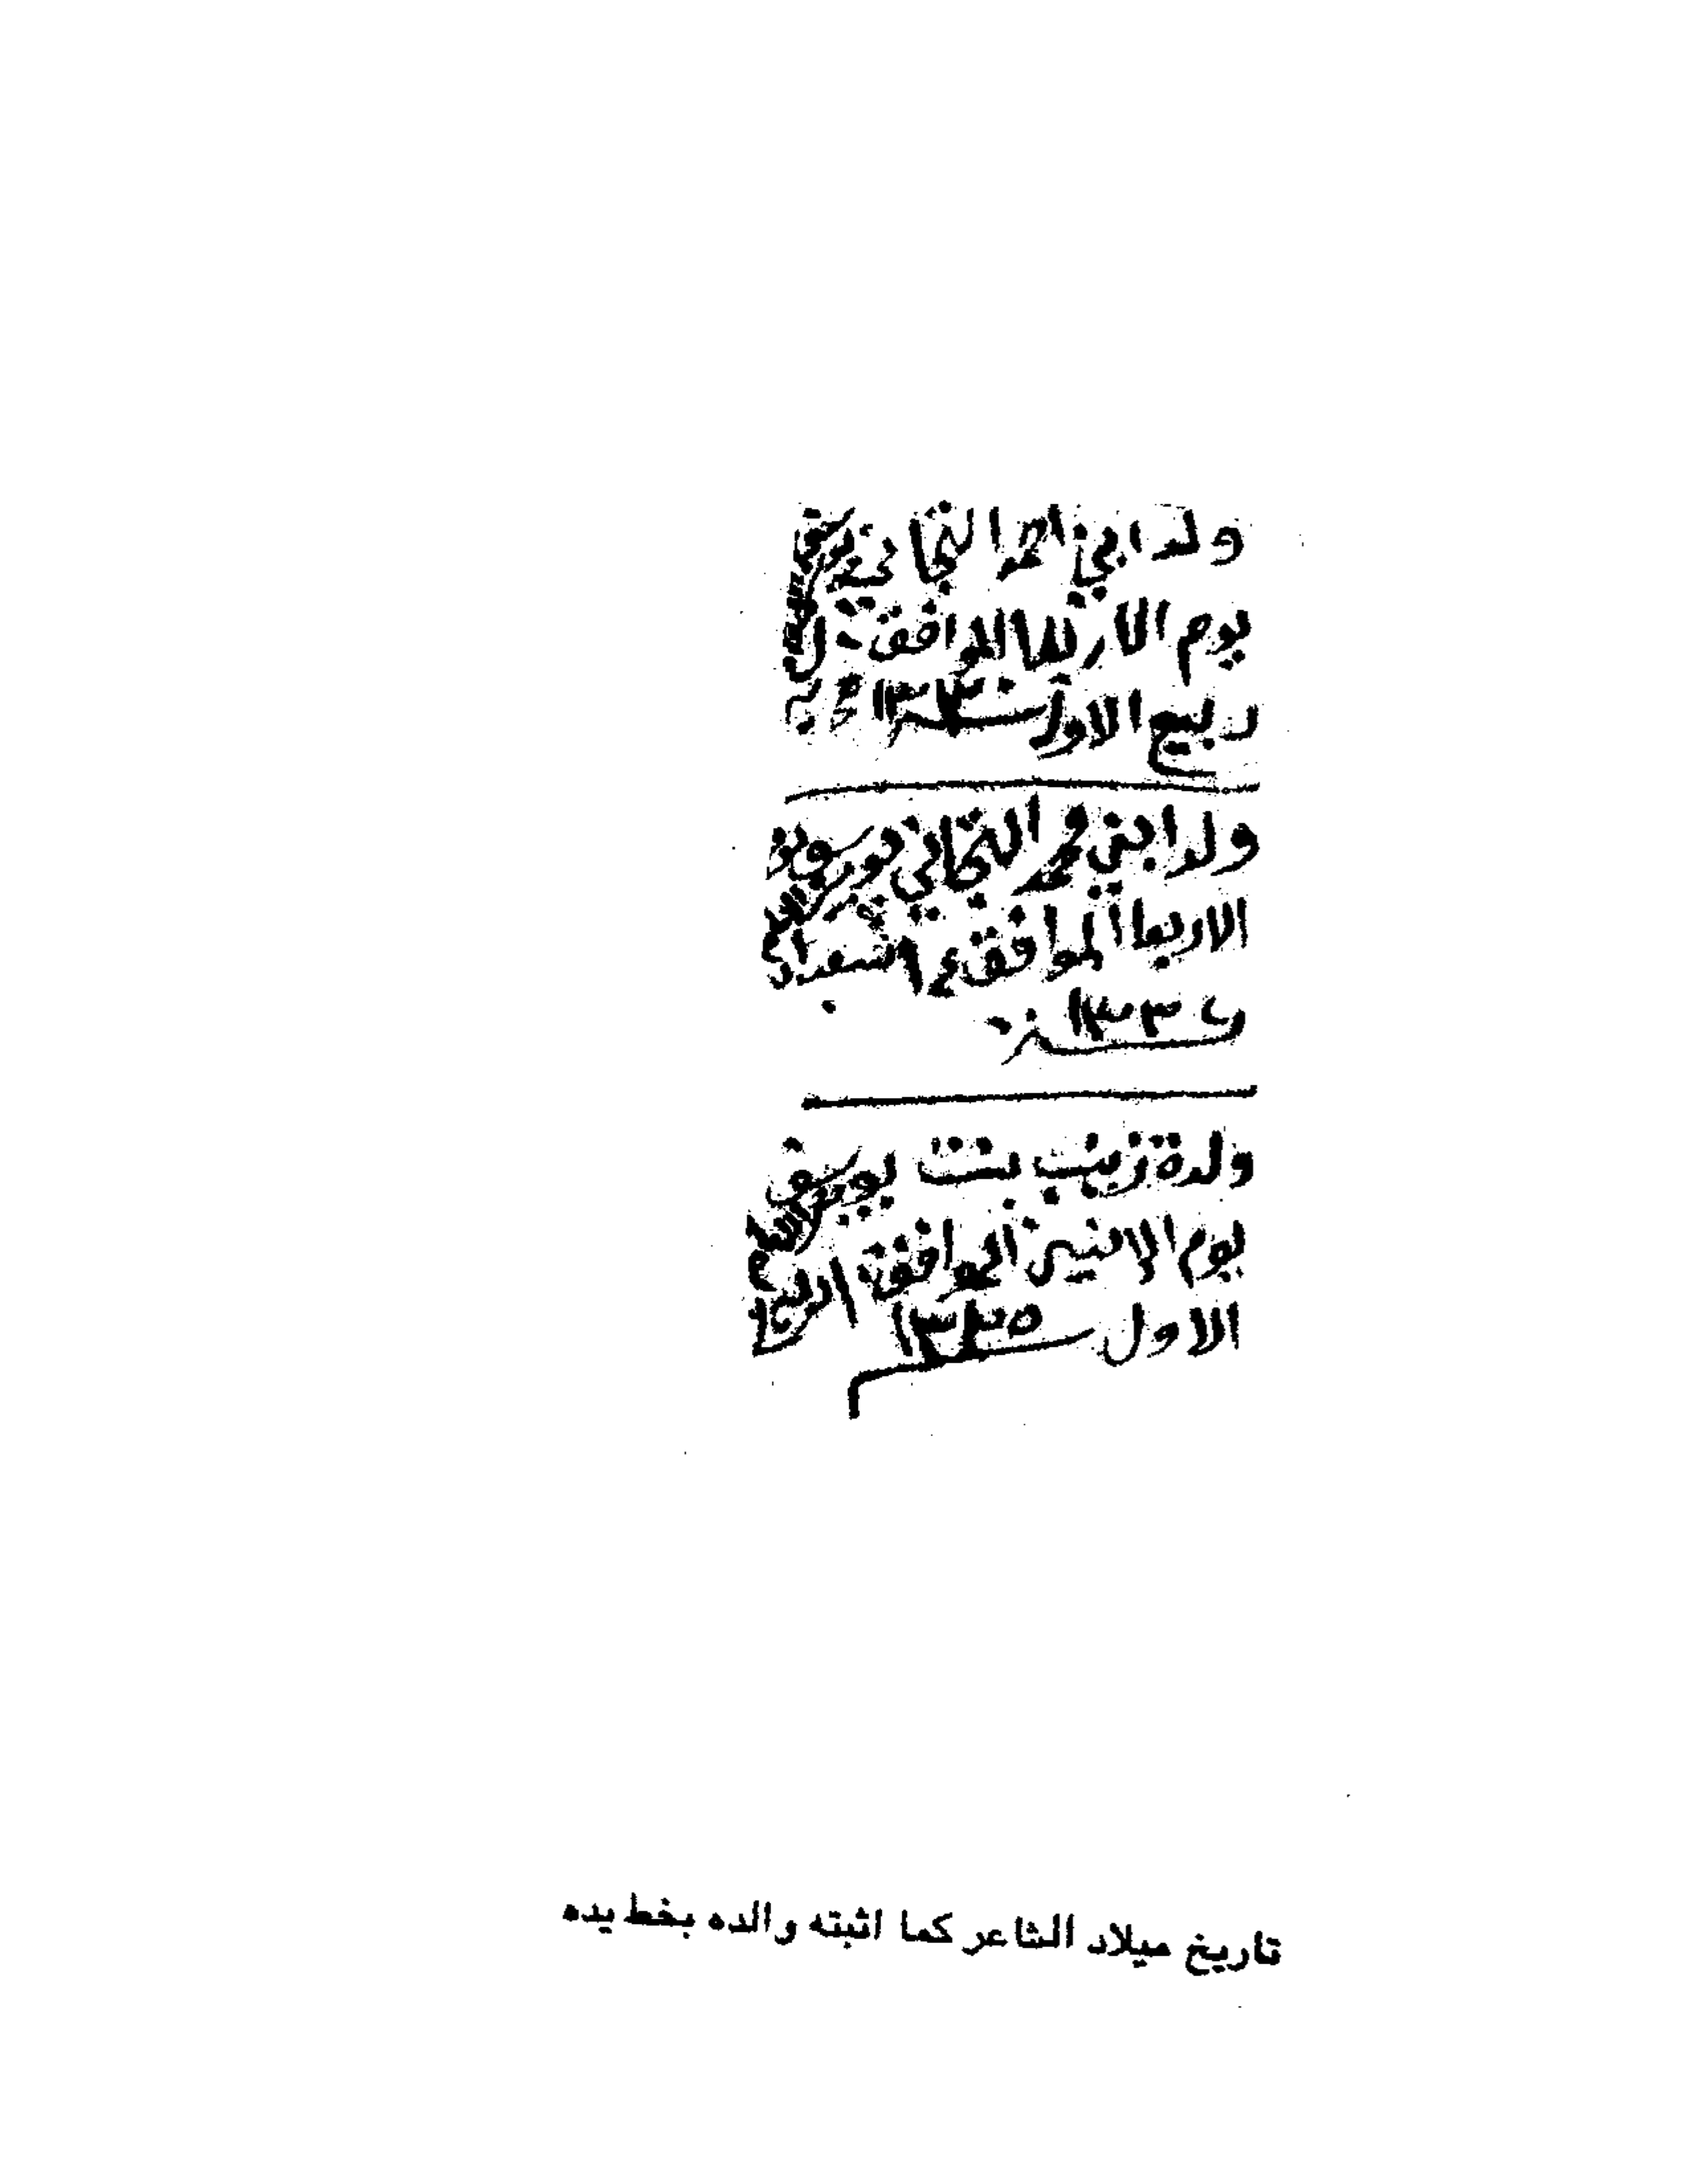 ولد ابني احمد التجاني يوسف
يوم الاربعا الموافق
ربيع الاول سنة ١٣٣٠
ولد ابني محمد التجاني يوسف
الاربعا الموافق
١٣٣ سنة
ولدة زينب بنت يوسف
يوم الاثنين الموافق ربيع
الاول ١٣٣٥
تاريخ ميلاد الشاعر كما اثبته والده بخط يده